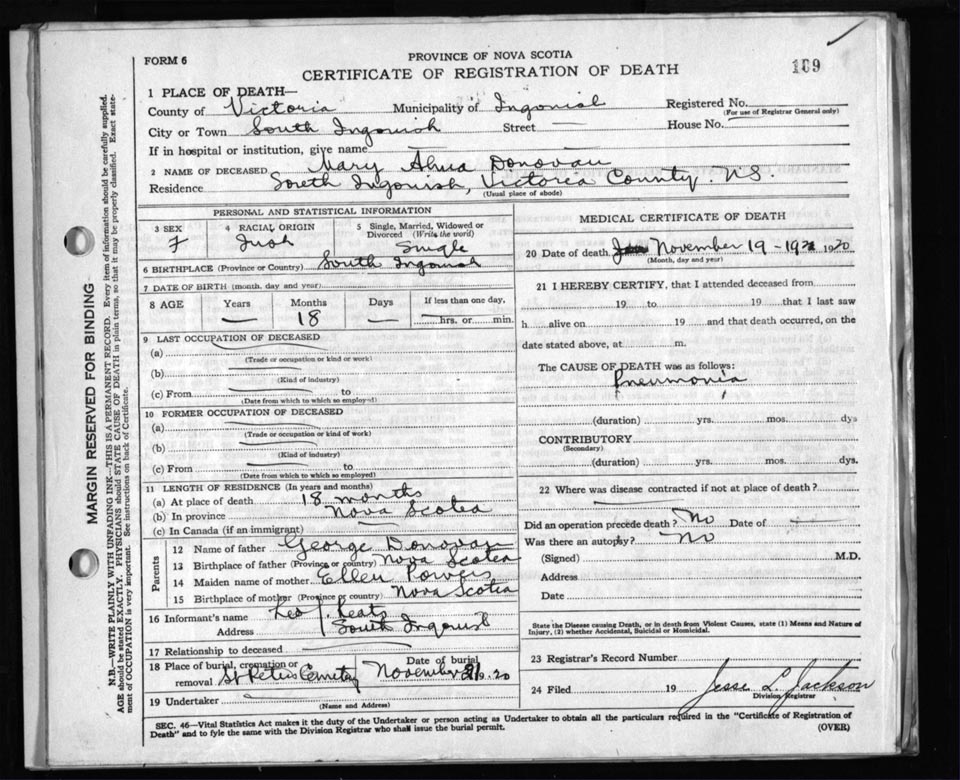 FORM 6
PROVINCE OF NOVA SCOTIA
CERTIFICATE OF REGISTRATION OF DEATH
189
1 PLACE OF DEATH—
County of Victoria Municipality of Ingonish Registered No.
(For use of Registrar General only)
City or Town South Ingonish Street — House No.
If in hospital or institution, give name —
2 NAME OF DECEASED Mary Donovan
Residence South Ingonish, Victoria County. N.S.
(Usual place of abode)
PERSONAL AND STATISTICAL INFORMATION
3 SEX F
4 RACIAL ORIGIN Irish
5 Single, Married, Widowed or Divorced (Write the word) Single
6 BIRTHPLACE (Province or Country) South Ingonish
7 DATE OF BIRTH (month, day and year)
8 AGE Years — Months 18 Days — If less than one day, hrs. or min.
9 LAST OCCUPATION OF DECEASED
(a)
(Trade or occupation or kind or work)
(b)
(Kind of industry)
(c) From to
(Date from which to which so employed)
10 FORMER OCCUPATION OF DECEASED
(a)
(Trade or occupation or kind of work)
(b)
(Kind of industry)
(c) From to
(Date from which to which so employed)
11 LENGTH OF RESIDENCE (In years and months)
(a) At place of death 18 months
(b) In province Nova Scotia
(c) In Canada (if an immigrant) —
Parents
12 Name of father George Donovan
13 Birthplace of father (Province or country) Nova Scotia
14 Maiden name of mother Ellen Powers
15 Birthplace of mother (Province or country) Nova Scotia
16 Informant's name Leo J. Keats
Address South Ingonish
17 Relationship to deceased
18 Place of burial, cremation or removal St Peters Cemetery Date of burial November 21 19.20
19 Undertaker
(Name and Address)
MEDICAL CERTIFICATE OF DEATH
20 Date of death November 19 - 1920
(Month, day and year)
21 I HEREBY CERTIFY, that I attended deceased from
19 to 19 that I last saw
h alive on 19 and that death occurred, on the
date stated above, at m.
The CAUSE OF DEATH was as follows:
Pneumonia
(duration) yrs. mos. dys
CONTRIBUTORY
(Secondary)
(duration) yrs. mos. dys.
22 Where was disease contracted if not at place of death?
Did an operation precede death? No Date of —
Was there an autopsy? No
(Signed) M.D.
Address
Date
State the Disease causing Death, or in death from Violent Causes, state (1) Means and Nature of
Injury, (2) whether Accidental, Suicidal or Homicidal.
23 Registrar's Record Number
24 Filed 19 Jesse L. Jackson
Division Registrar
SEC. 46—Vital Statistics Act makes it the duty of the Undertaker or person acting as Undertaker to obtain all the particulars required in the "Certificate of Registration of
Death" and to fyle the same with the Division Registrar who shall issue the burial permit.
(OVER)
MARGIN RESERVED FOR BINDING
N.B.—WRITE PLAINLY WITH UNFADING INK—THIS IS A PERMANENT RECORD. Every item of information should be carefully supplied.
AGE should be stated EXACTLY. PHYSICIANS should STATE CAUSE OF DEATH in plain terms, so that it may be properly classified. Exact state-
ment of OCCUPATION is very important. See instructions on back of Certificate.